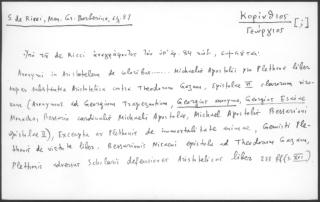 S. de Ricci, Mss. Gr. Barberine, σελ. 87
Κορίνθιος [;]
Γεώργιος
Ὑπὸ τοῦ de Ricci ἀναγράφονται ὑπ' ἀρ. 84
Anonymi in Aristotelem de coloribus...... Michaelis Apostolii pro Plethone liber
super substantia Aristotelica contra Theodorum Gazam, Epistolae VI clarorum viro-
rum (Anonymus ad Georgium Trapezuntium, Georgius
Monacho, Bessario cardinalis Michaeli Apostolio, Michael Apostolii Bessarioni
epistolae 2), Excerpta ex Plethonis de immortalitate animae, Gemisti Ple-
thonis de virtute liber. Bessarionis Nicaeni epistola ad Theodorum Gazam,
Plethonis adversus Scholarii defensiones Aristotelicas liber 235 ff (s. XVI)